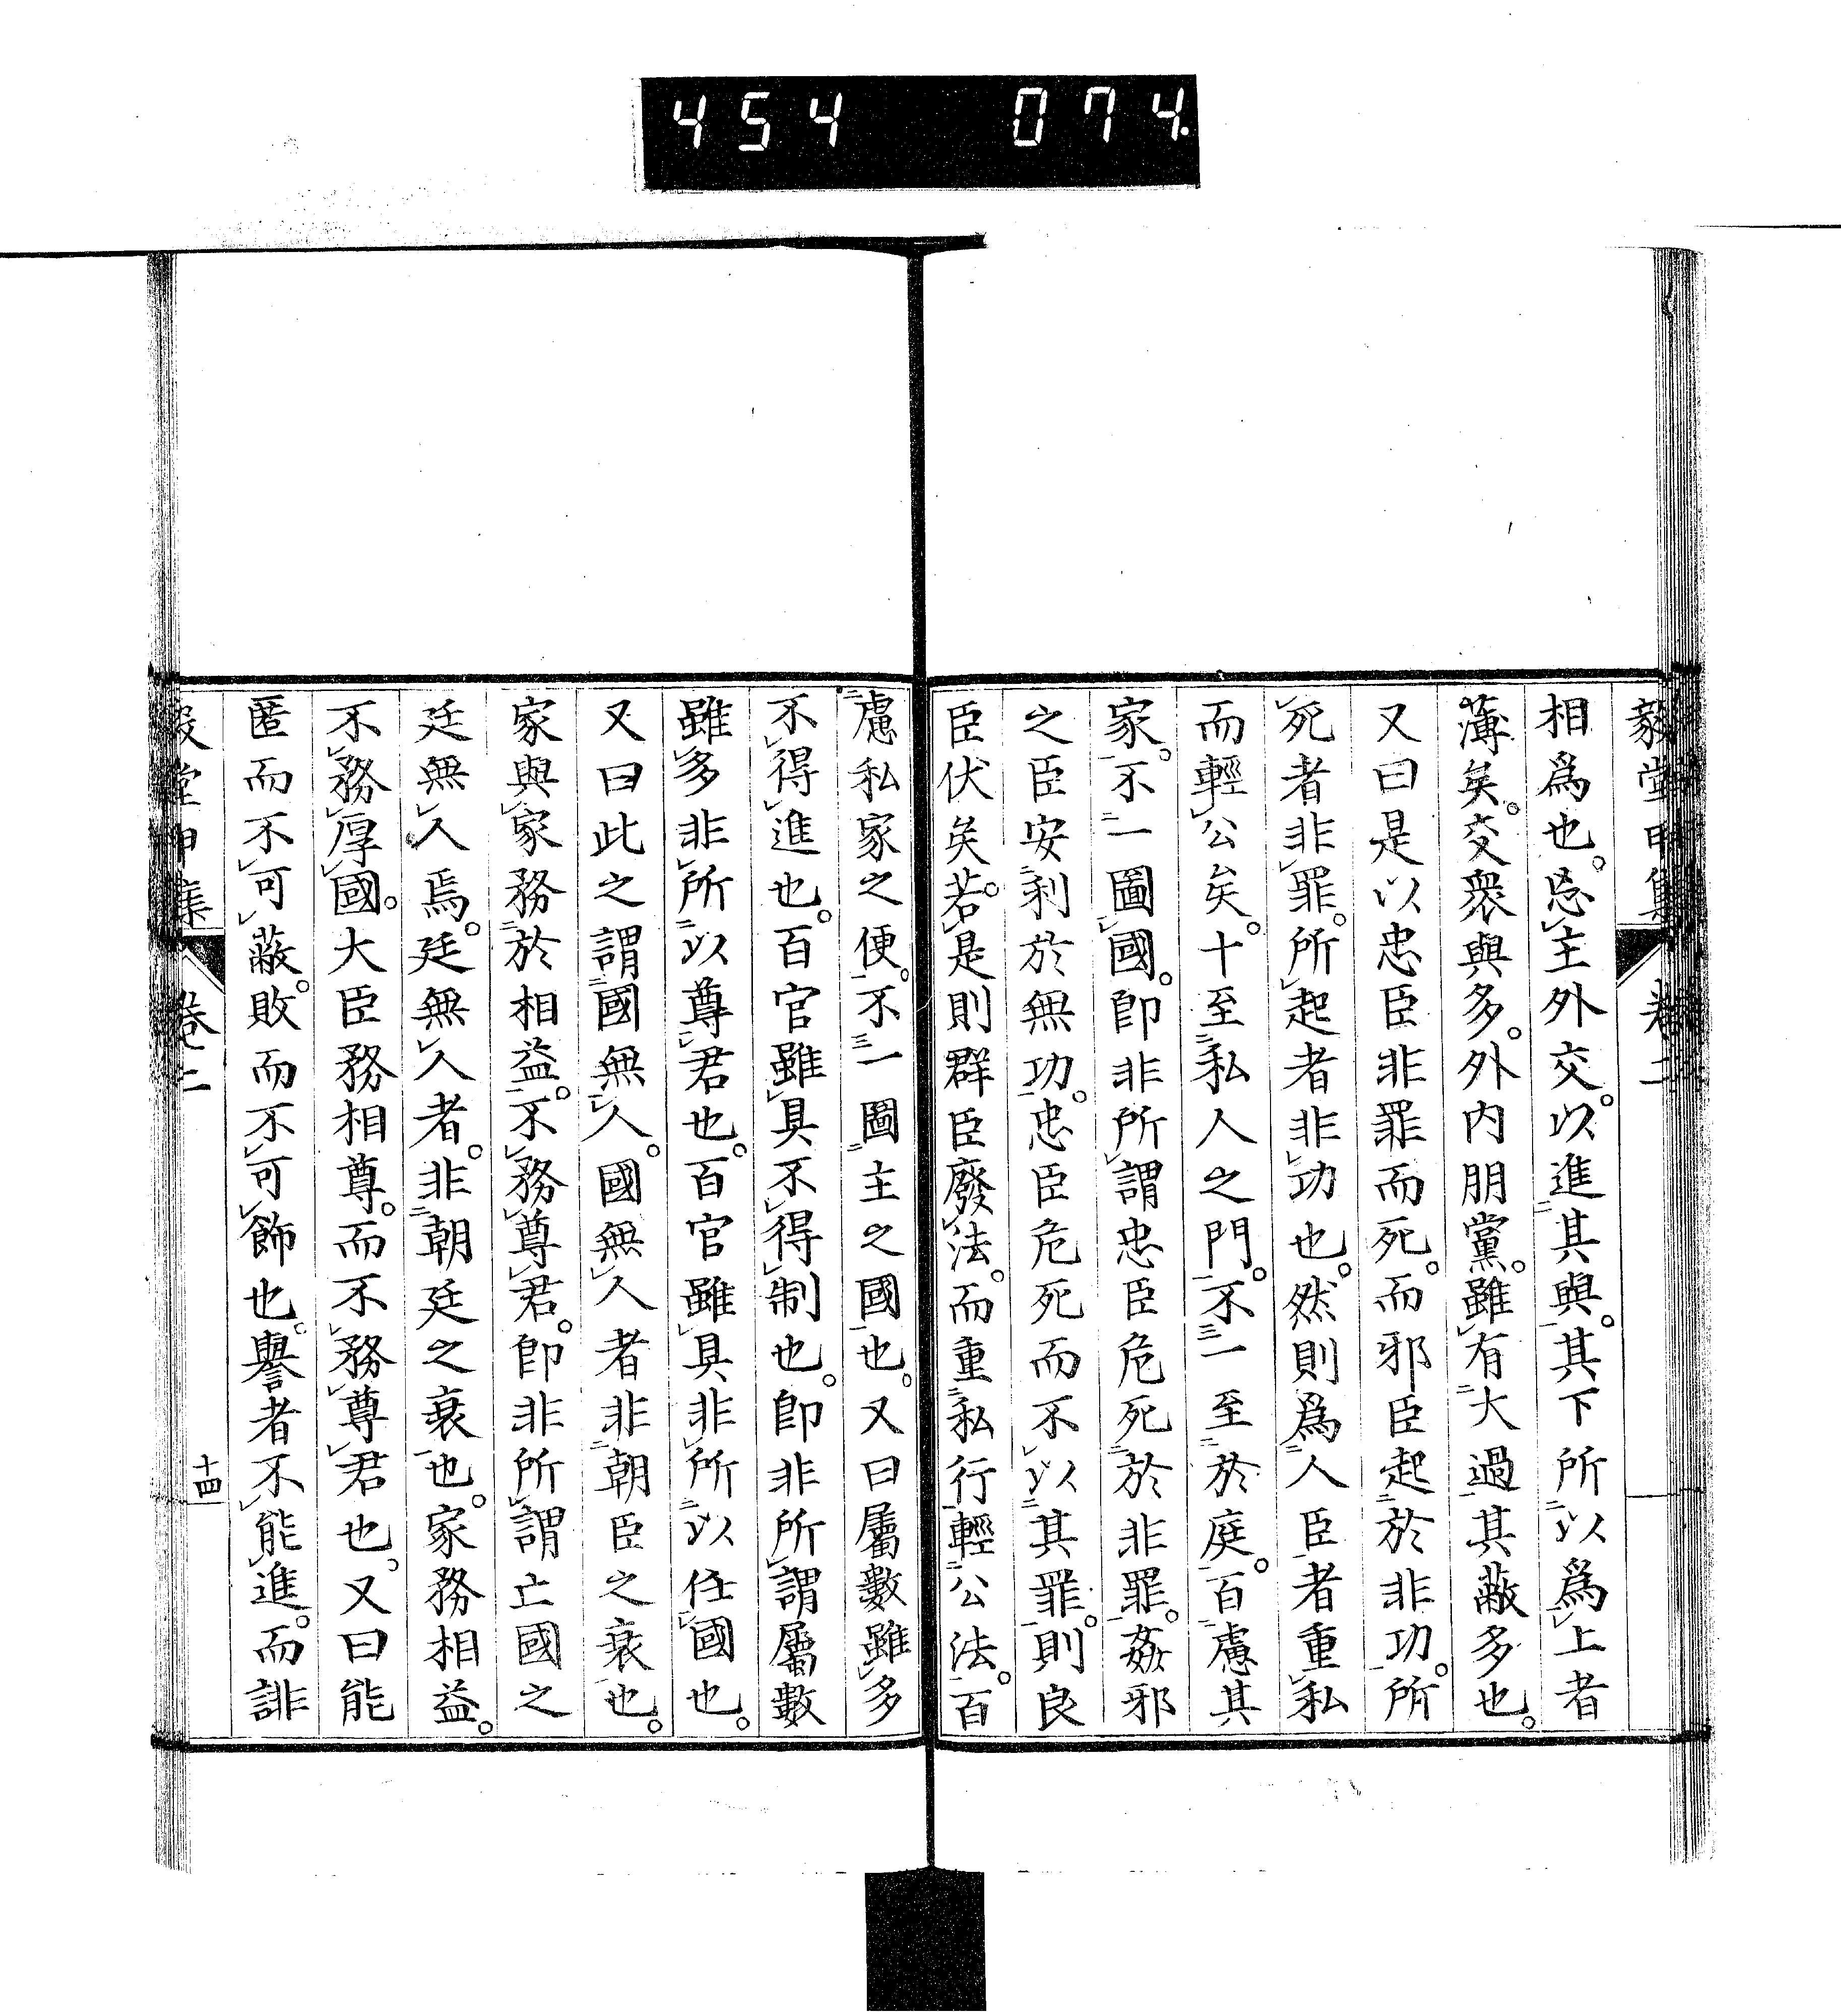 454 074.
毅堂甲集 卷二
相爲也。忘主外交。以進其與。其下所以爲上者
薄矣。交衆與多。外内朋黨。雖有大過其蔽多也。
又曰是以忠臣非罪而死。而邪臣起於非功。所
死者非罪。所起者非功也。然則爲人臣者重私
而輕公矣。十至私人之門。不一至於庭。百慮其
家。不一圖國。卽非所謂忠臣危死於非罪。姦邪
之臣安利於無功。忠臣危死而不以其罪。則良
臣伏矣。若是則群臣廢法。而重私行輕公法。百
慮私家之便。不一圖主之國也。又曰屬數雖多
不得進也。百官雖具不得制也。卽非所謂屬數
雖多非所以尊君也。百官雖具非所以任國也。
又曰此之謂國無人。國無人者非朝臣之衰也。
家與家務於相益。不務尊君。卽非所謂亡國之
廷無人焉。廷無人者。非朝廷之衰也。家務相益。
不務厚國。大臣務相尊。而不務尊君也。又曰能
匿而不可蔽。敗而不可飾也。譽者不能進。而誹
毅堂甲集 卷二 十四